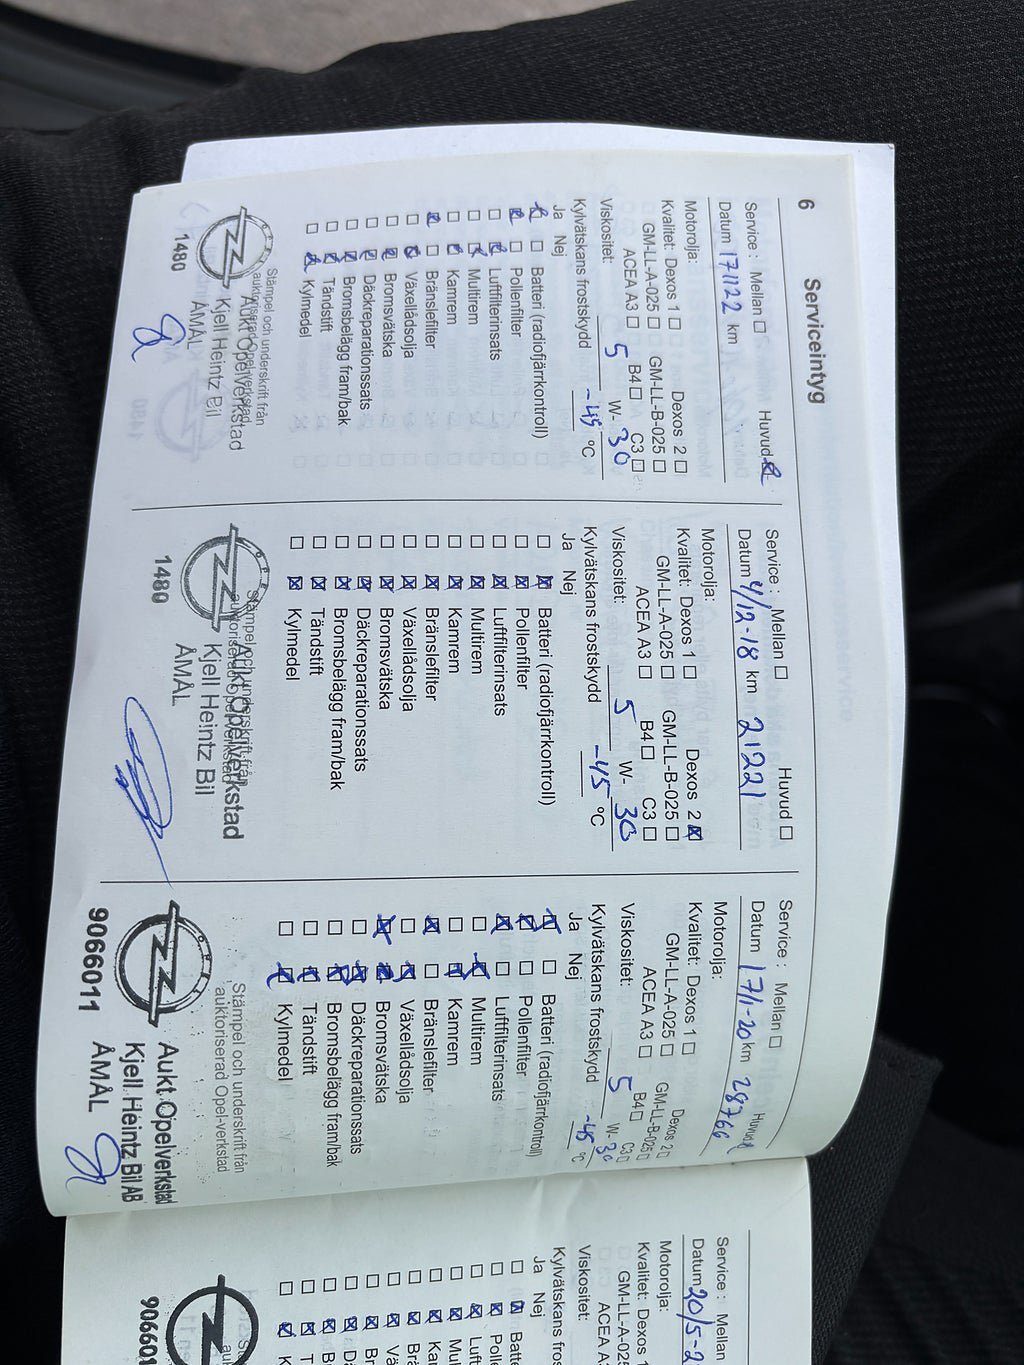 6 Serviceintyg
Service : Mellan ☐ Huvud ☒
Datum 171122 km
Motorolja:
Kvalitet: Dexos 1 ☐ Dexos 2 ☐
GM-LL-A-025 ☐ GM-LL-B-025 ☐
ACEA A3 ☐ B4 ☐ C3 ☐
Viskositet: 5 W- 30
Kylvätskans frostskydd -45 °C
Ja Nej
☒ ☐ Batteri (radiofjärrkontroll)
☒ ☐ Pollenfilter
☐ ☒ Luftfilterinsats
☐ ☒ Multirem
☐ ☒ Kamrem
☒ ☐ Bränslefilter
☐ ☒ Växellådsolja
☐ ☒ Bromsvätska
☐ ☒ Däckreparationssats
☐ ☒ Bromsbelägg fram/bak
☐ ☒ Tändstift
☐ ☒ Kylmedel
Stämpel och underskrift från
auktoriserad Opel-verkstad
Aukt Opelverkstad
Kjell Heintz Bil
ÅMÅL
1480
Service : Mellan ☐ Huvud ☐
Datum 4/12-18 km 21221
Motorolja:
Kvalitet: Dexos 1 ☐ Dexos 2 ☒
GM-LL-A-025 ☐ GM-LL-B-025 ☐
ACEA A3 ☐ B4 ☐ C3 ☐
Viskositet: 5 W- 30
Kylvätskans frostskydd -45 °C
Ja Nej
☐ ☒ Batteri (radiofjärrkontroll)
☐ ☒ Pollenfilter
☐ ☒ Luftfilterinsats
☐ ☒ Multirem
☐ ☒ Kamrem
☐ ☒ Bränslefilter
☐ ☒ Växellådsolja
☐ ☒ Bromsvätska
☐ ☒ Däckreparationssats
☐ ☒ Bromsbelägg fram/bak
☐ ☒ Tändstift
☐ ☒ Kylmedel
Stämpel och underskrift från
auktoriserad Opel-verkstad
Aukt Opelverkstad
Kjell Heintz Bil
ÅMÅL
1480
Service : Mellan ☐ Huvud ☒
Datum 17/1-20 km 28766
Motorolja:
Kvalitet: Dexos 1 ☐ Dexos 2 ☐
GM-LL-A-025 ☐ GM-LL-B-025 ☐
ACEA A3 ☐ B4 ☐ C3 ☐
Viskositet: 5 W- 30
Kylvätskans frostskydd -45 °C
Ja Nej
☒ ☐ Batteri (radiofjärrkontroll)
☒ ☐ Pollenfilter
☒ ☐ Luftfilterinsats
☐ ☒ Multirem
☐ ☒ Kamrem
☒ ☐ Bränslefilter
☐ ☒ Växellådsolja
☒ ☒ Bromsvätska
☐ ☒ Däckreparationssats
☐ ☒ Bromsbelägg fram/bak
☐ ☒ Tändstift
☐ ☒ Kylmedel
Stämpel och underskrift från
auktoriserad Opel-verkstad
Aukt Opelverkstad
Kjell Heintz Bil AB
ÅMÅL
9066011
Service : Mellan
Datum 20/5-2
Motorolja:
Kvalitet: Dexos 1
GM-LL-A-02
ACEA A
Viskositet:
Kylvätskans fros
Ja Nej
☐ ☒ Batte
☐ ☒ Polle
☐ ☒ Luft
☐ ☒ Mul
☐ ☒ Ka
☐ ☒ Br
☐ ☒ Vä
☐ ☒ Br
☐ ☒ Dä
☐ ☒ B
☐ ☒ T
☐ ☒ K
906601